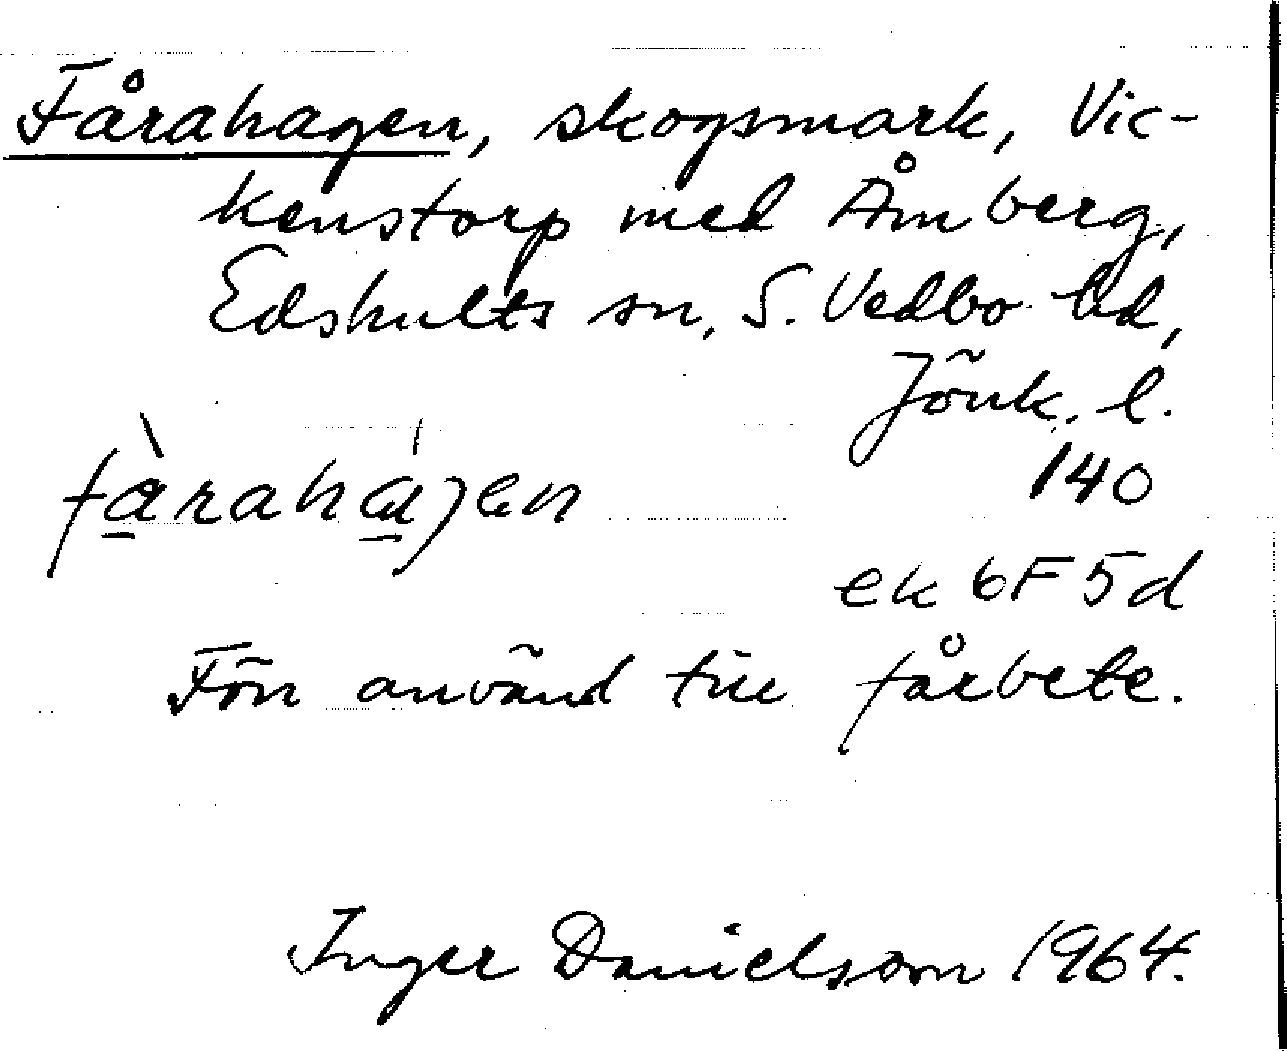 Fårahagen, skogsmark, Vic-
kenstorp med Åmberg,
Edshults sn, S. Vedbo hd,
Jönk. l.
fàrahájen
140
ek 6F5d
Förr använd till fårbete.
Inger Danielsson 1964.